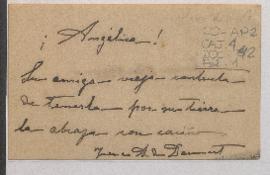 ¡Angélica!
Su amiga vieja contenta
de tenerla por su tierra
la abraza con cariño
A. de